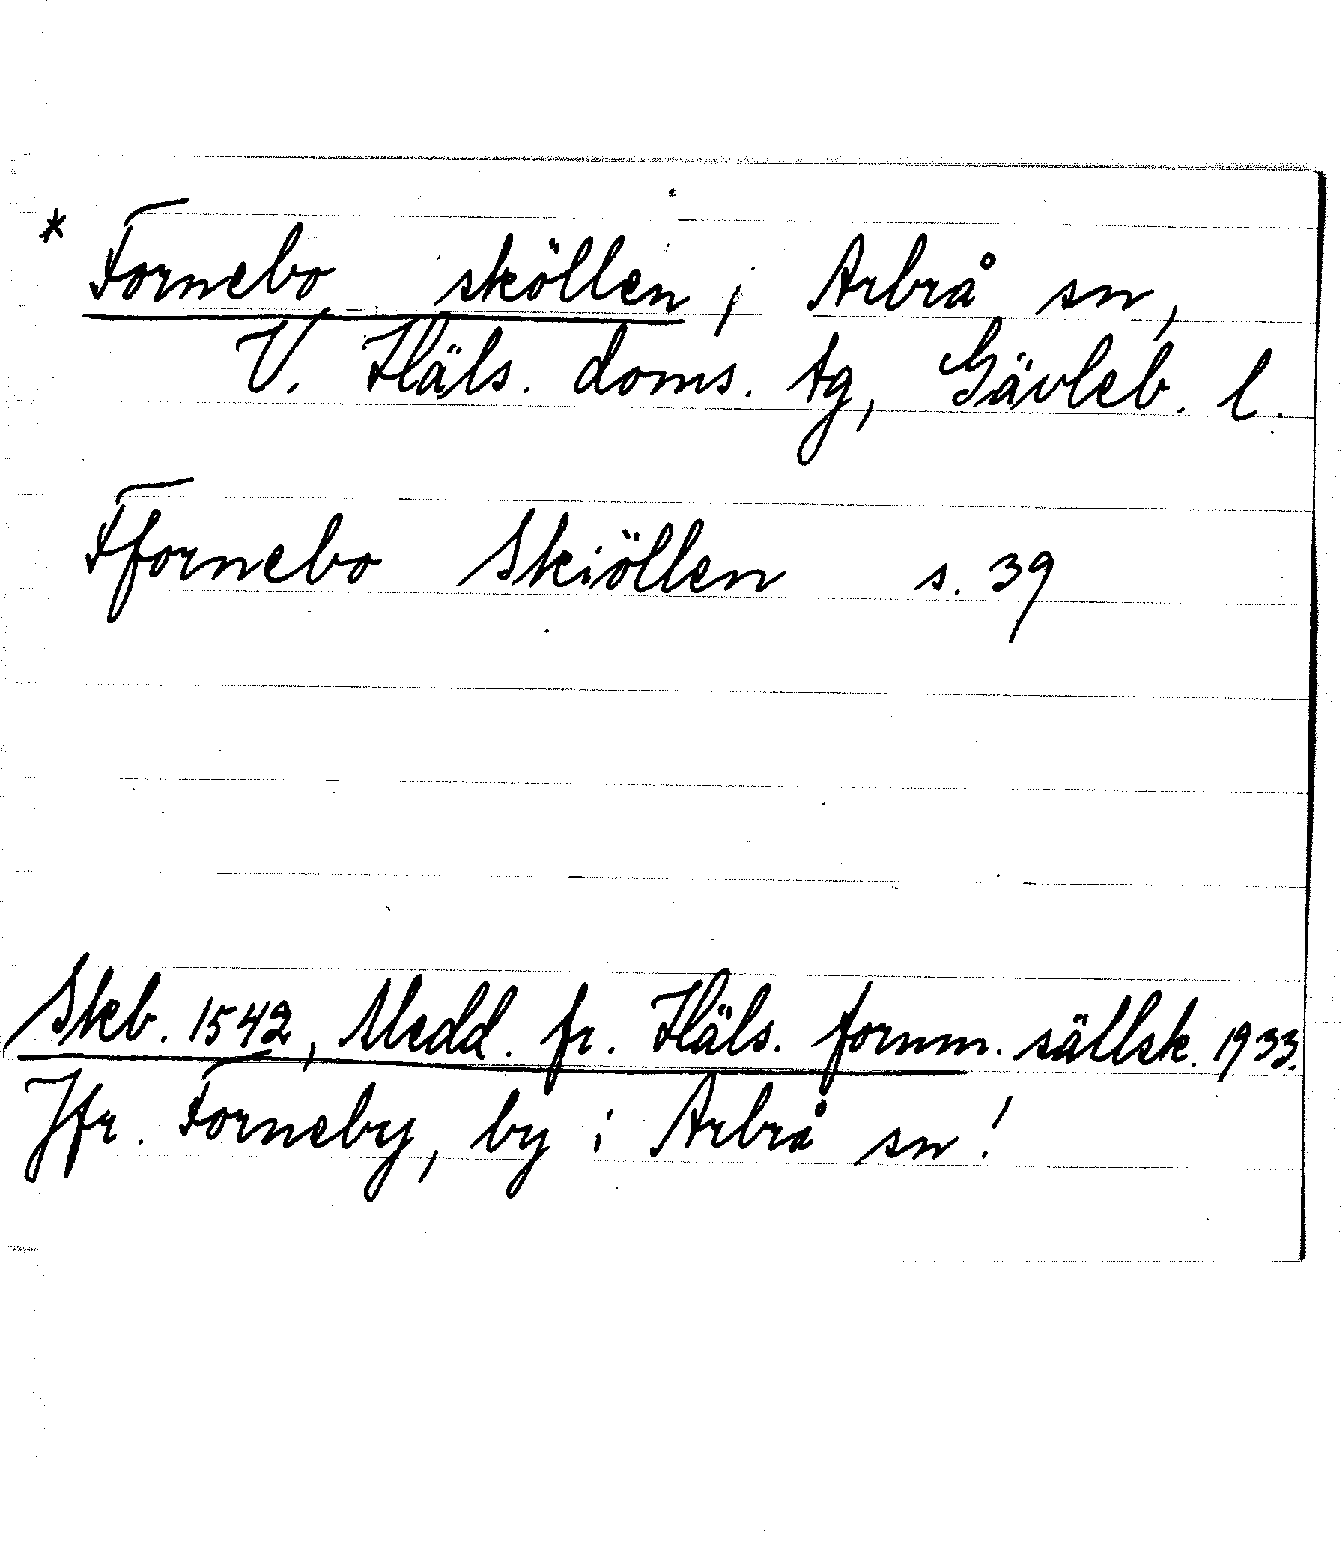 * Fornebo sköllen, Arbrå sn,
V. Häls. doms. tg, Gävleb. l.
Ffornebo Skiöllen s. 39
Skb. 1542, Medd. fr. Häls. fornm. sällsk. 1933.
Jfr. Forneby, by i Arbrå sn!